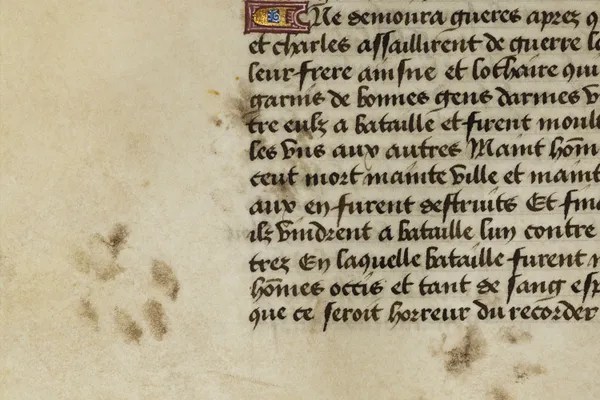 Ne demoura gueres aprez
et charles assaillirent de guerre
leur frere aisne et lothaire qui
garnis de bonnes gens darmes
tre eulz a bataille et firent moult
les vns aux autres Maint hom̄
ceut mort mainte ville et maint
aux en furent destruits Et
ilz vindrent a bataille lun contre
trez En laquelle bataille furent
hom̄es occis et tant de sang
que ce seroit horreur du recorder